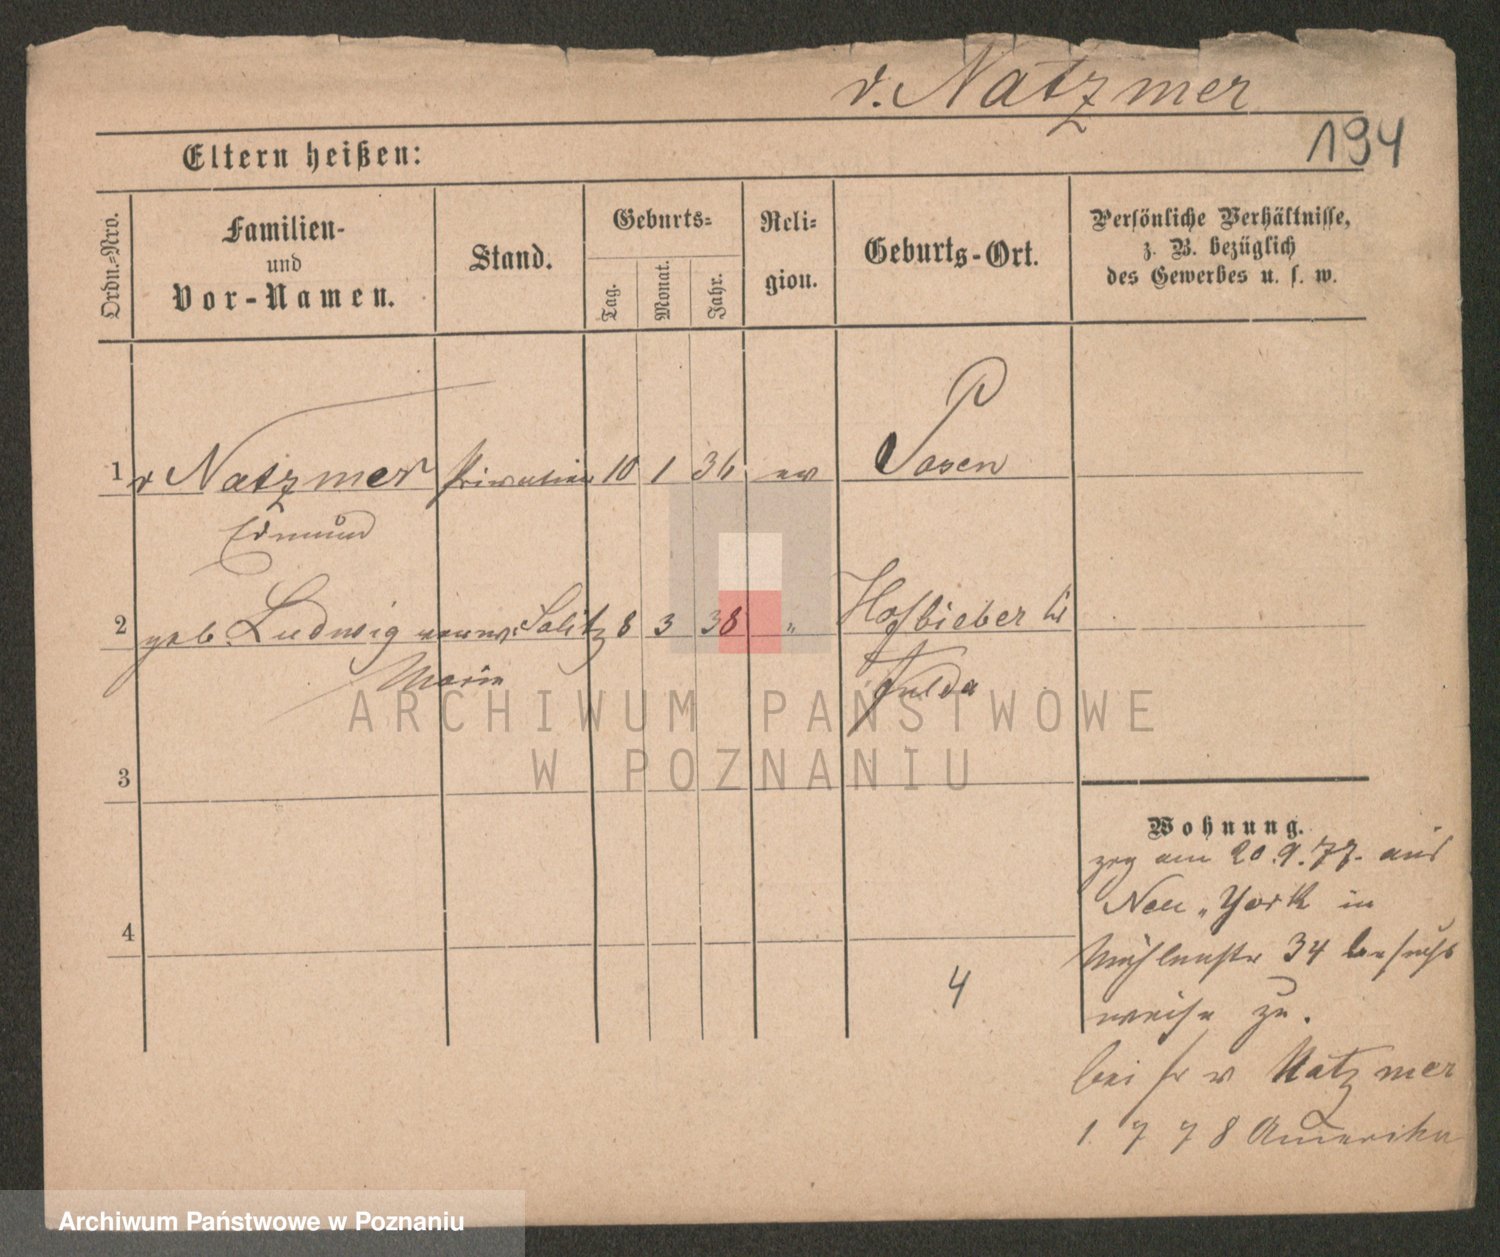 v. Natzmer
194
Eltern heißen:
Ordn.-Nro.
Familien-
und
Vor-Namen.
Stand.
Geburts-
Tag.
Monat.
Jahr.
Reli-
gion.
Geburts-Ort.
Persönliche Verhältnisse,
z. B. bezüglich
des Gewerbes u. s. w.
1 v Natzmer Privatier 10 1 36 ev Posen
Edmund
2 geb. Ludwig verw: Solitz 8 3 38 " Hofbieber bei
Marie Fulda
3
4
4
Wohnung.
zog am 20.9.77. aus
Neu-York in
Mühlenstr 34 besuchs
weise zu.
bei Fr v Natzmer
1. 7 78 Amerika
ARCHIWUM PAŃSTWOWE
W POZNANIU
Archiwum Państwowe w Poznaniu